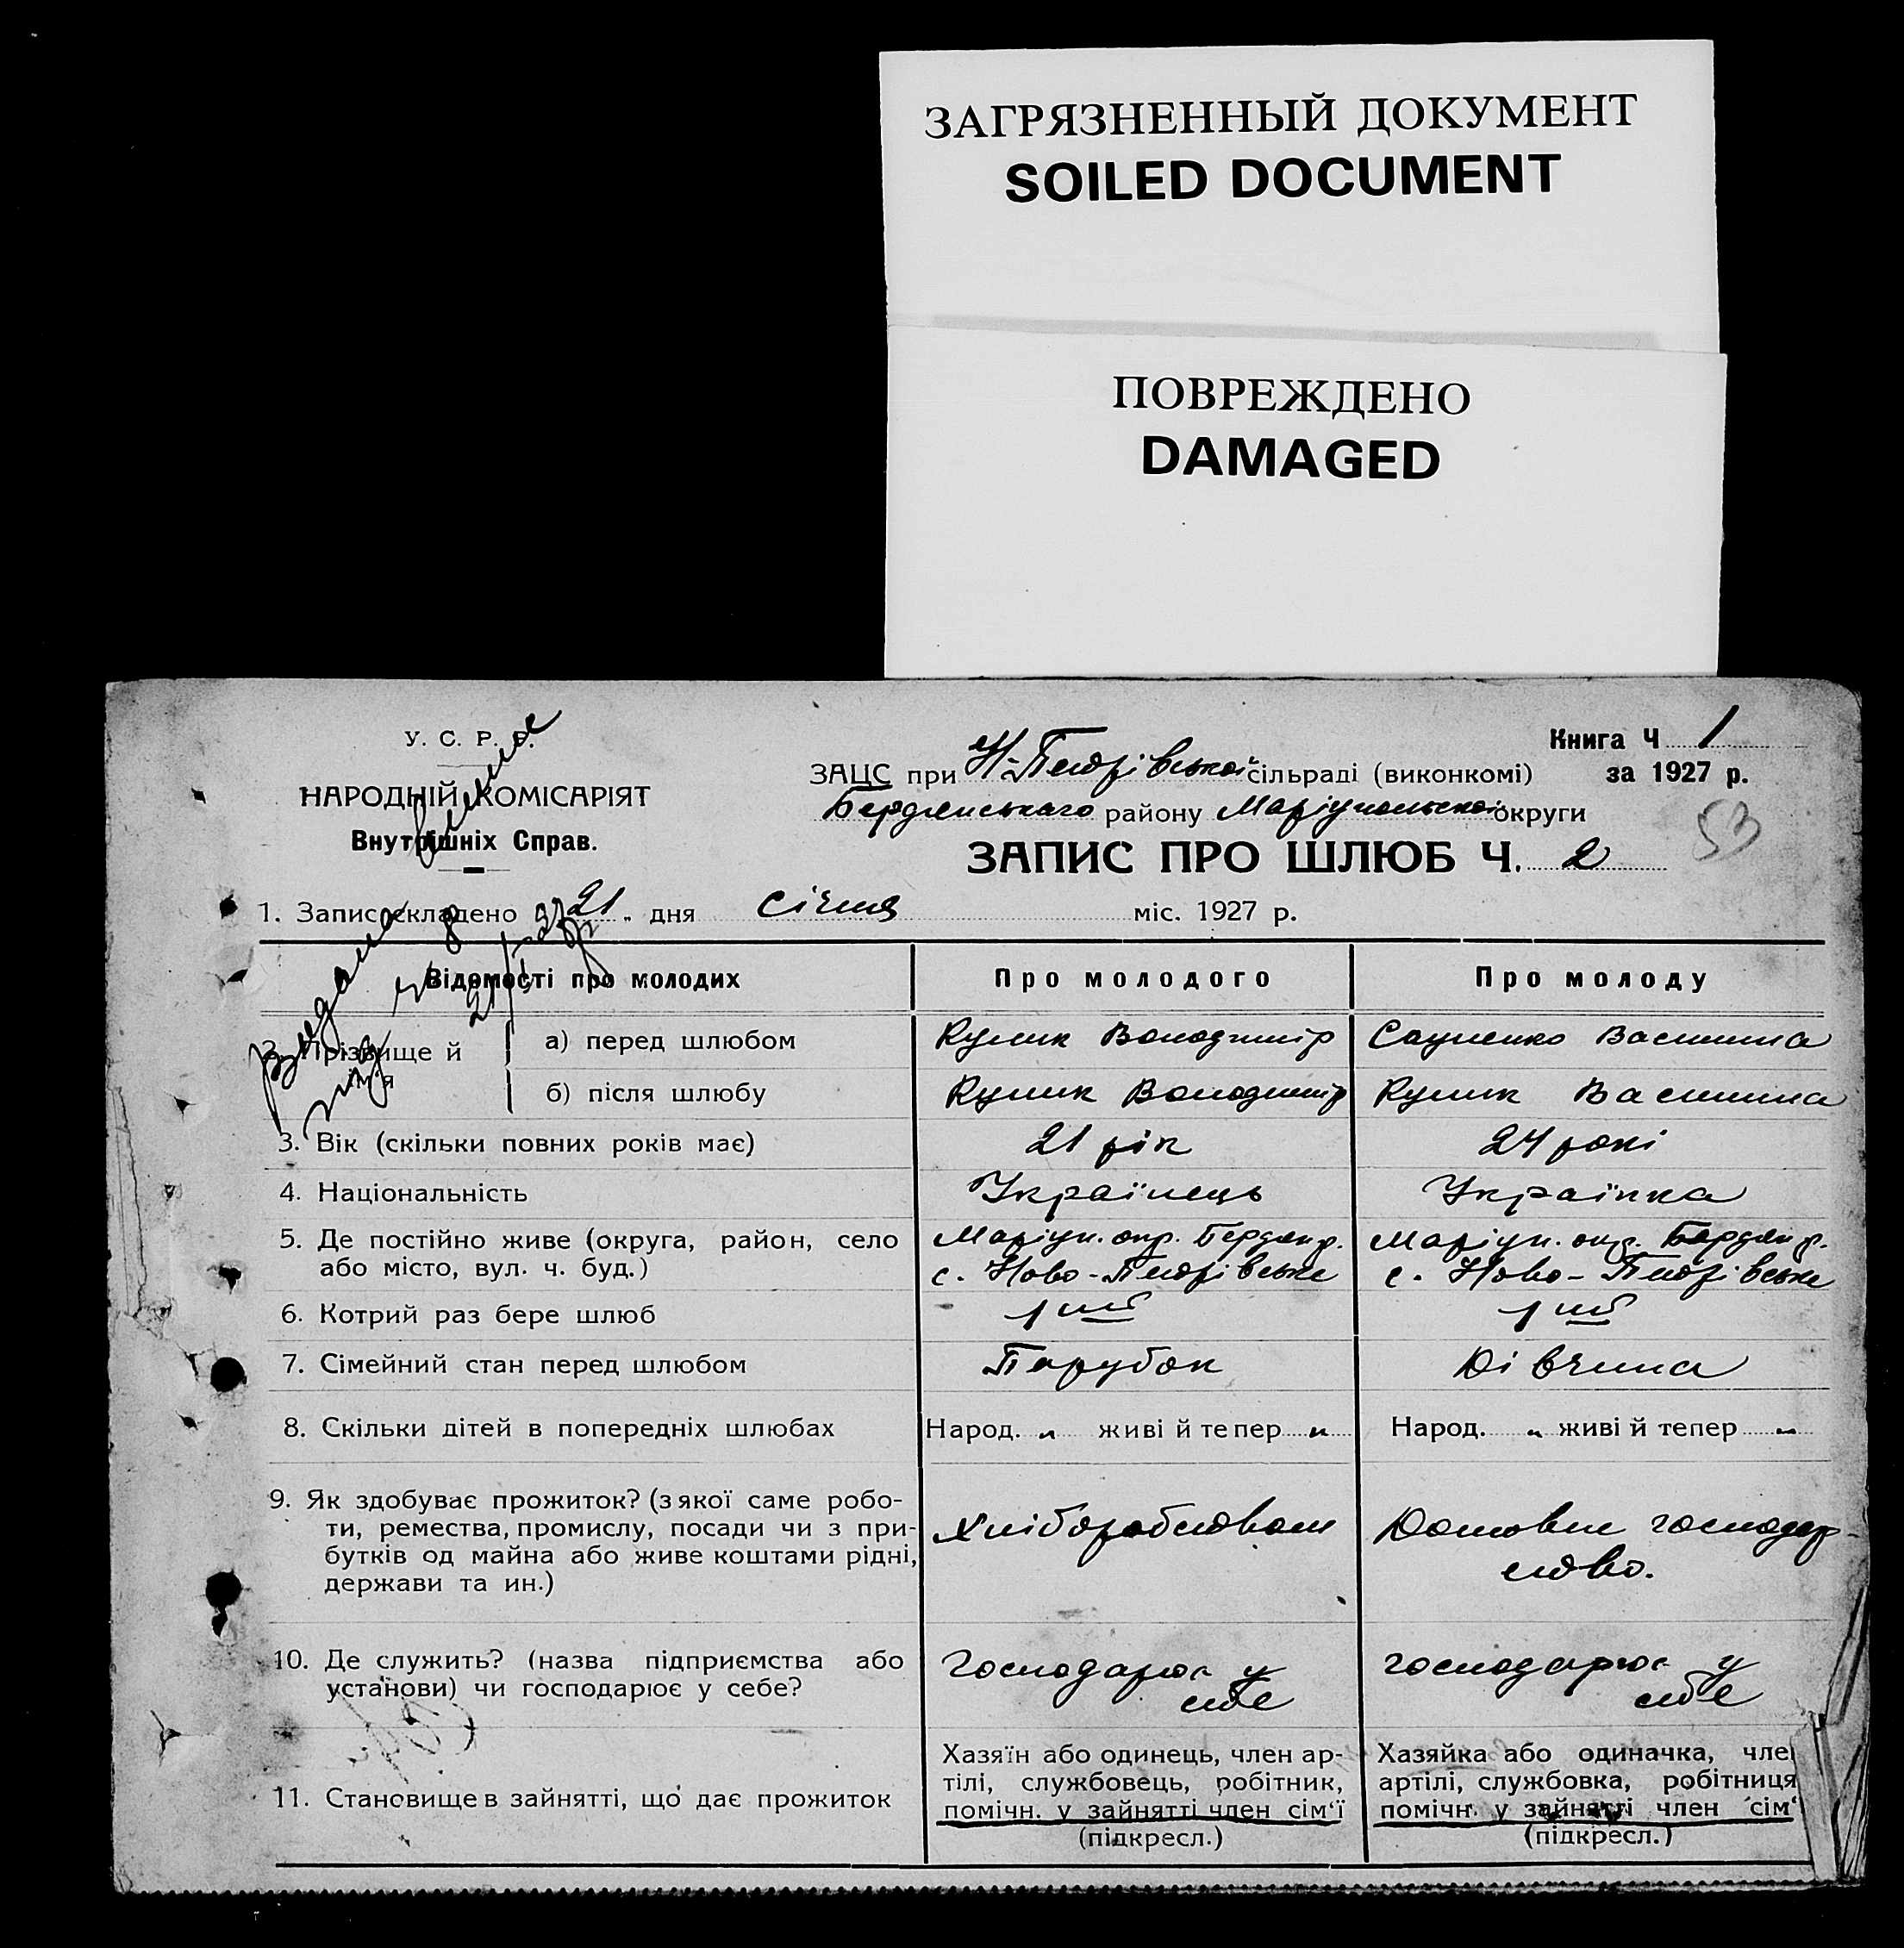 ЗАГРЯЗНЕННЫЙ ДОКУМЕНТ
SOILED DOCUMENT
ПОВРЕЖДЕНО
DAMAGED
У. С. Р. Р.
НАРОДНІЙ КОМІСАРІЯТ
Внутрішніх Справ.
Книга Ч 1
за 1927 р.
ЗАЦС при Н-Петрівській сільраді (виконкомі)
Бердянського району Маріупольської округи
53
ЗАПИС ПРО ШЛЮБ Ч. 2
1. Запис складено 21 „ дня січня міс. 1927 р.
Видана
виписка
Відомості про молодих
Про молодого
Про молоду
2. Прізвище й ім'я
а) перед шлюбом
Кулик Володимир
Сауленко Василина
б) після шлюбу
Кулик Володимир
Кулик Василина
3. Вік (скільки повних років має)
21 рік
24 рокі
4. Національність
Українець
Українка
5. Де постійно живе (округа, район, село
або місто, вул. ч. буд.)
Маріуп. окр. Бердян р.
с. Ново-Петрівське
Маріуп. окр. Бердян р.
с. Ново-Петрівське
6. Котрий раз бере шлюб
1ий
1ий
7. Сімейний стан перед шлюбом
Парубок
Дівчина
8. Скільки дітей в попередніх шлюбах
Народ. „ живі й тепер „
Народ. „ живі й тепер „
9. Як здобуває прожиток? (з якої саме робо-
ти, ремества, промислу, посади чи з при-
бутків од майна або живе коштами рідні,
держави та ин.)
Хліборобством
Домовне господар-
ство.
10. Де служить? (назва підприємства або
установи) чи господарює у себе?
Господарює у
себе
господарює у
себе
11. Становище в зайнятті, що дає прожиток
Хазяїн або одинець, член ар-
тілі, службовець, робітник,
помічн. у зайнятті член сім'ї
(підкресл.)
Хазяйка або одиначка, чле
артілі, службовка, робітниця
помічн. у зайнятті член сім'
(підкресл.)